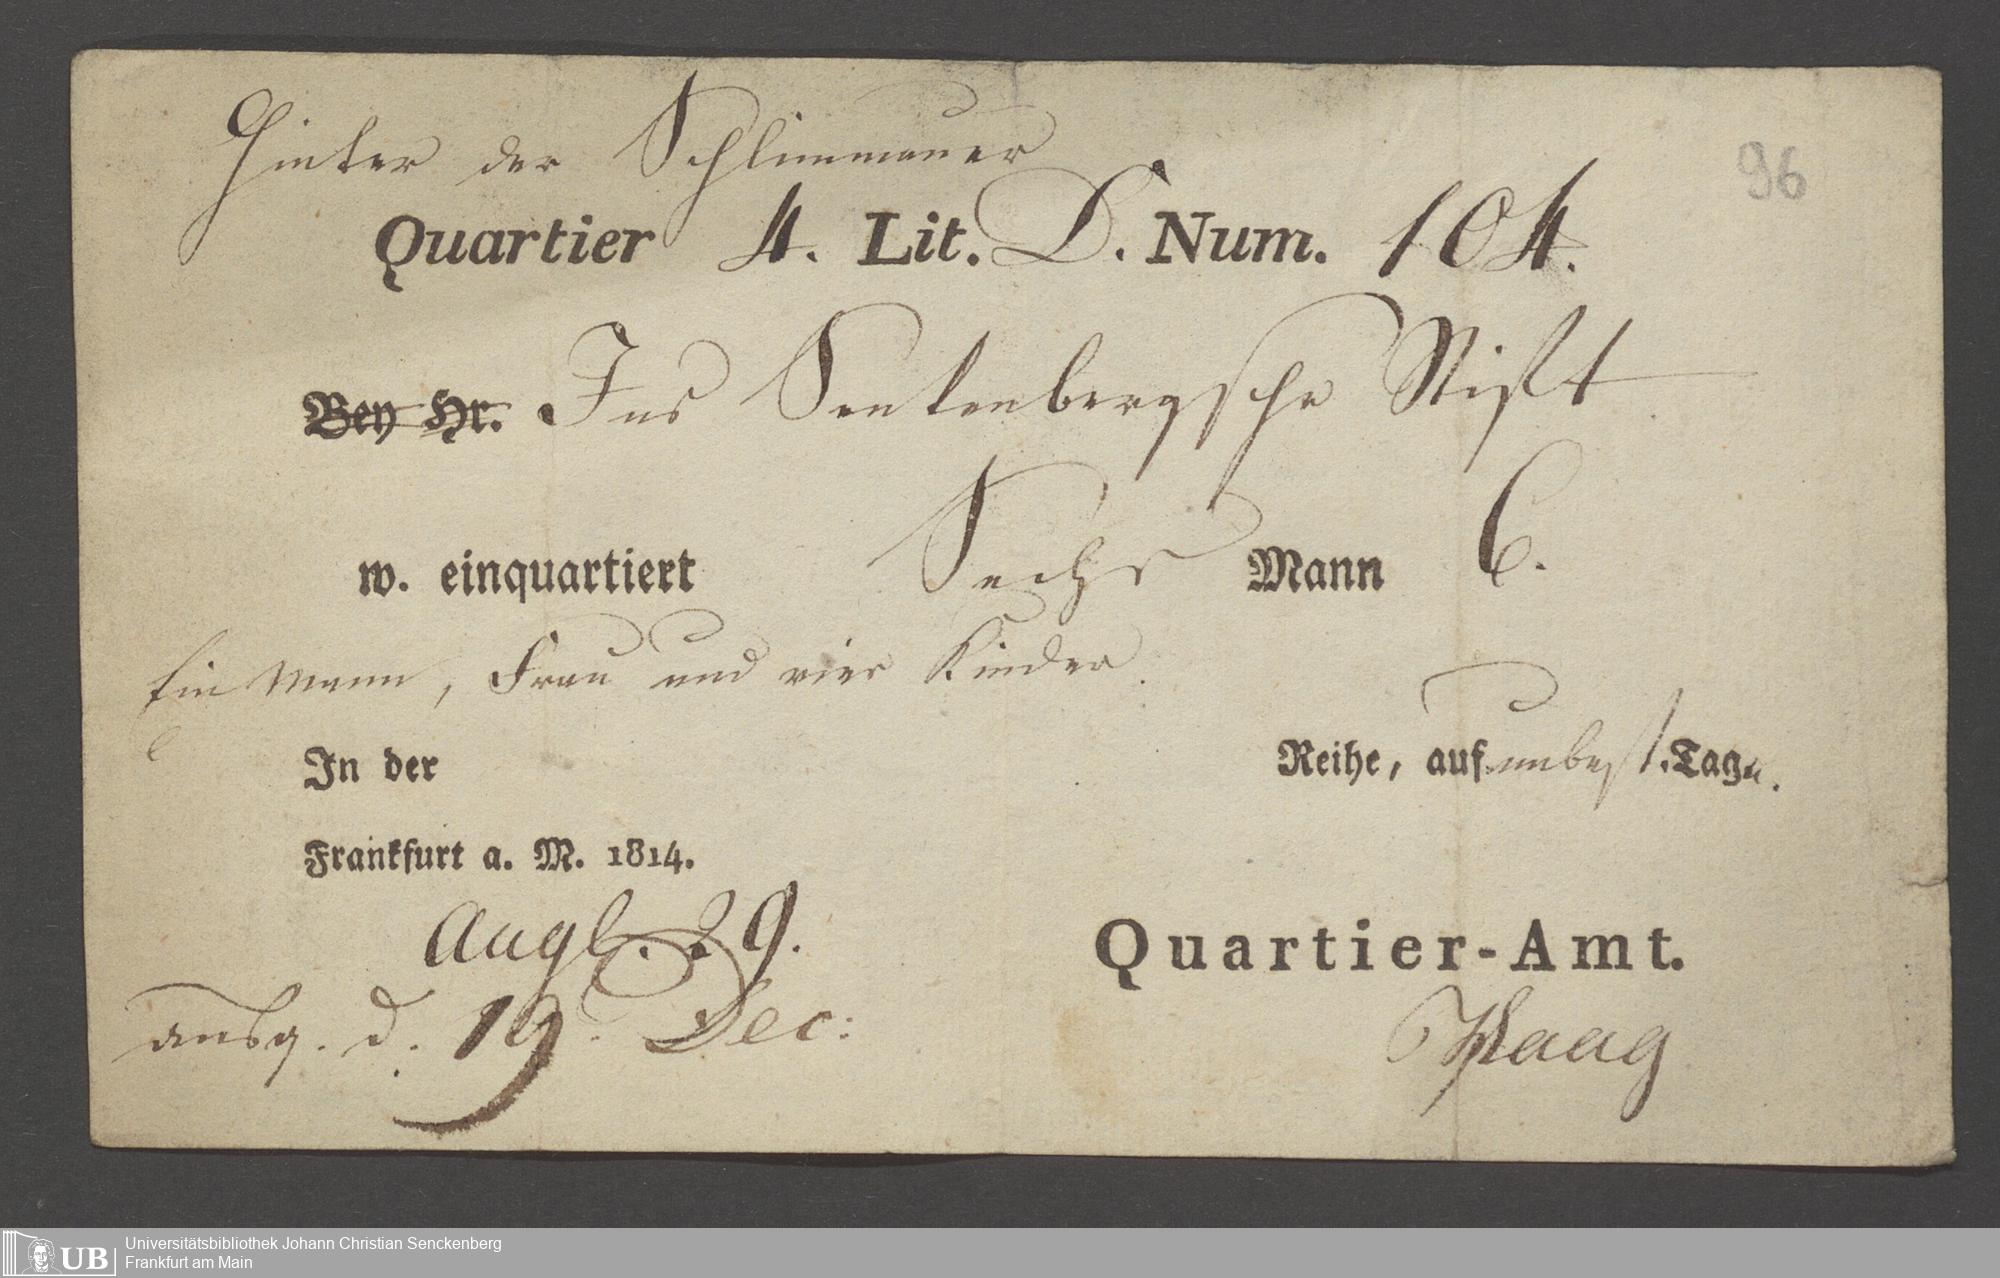 Hinter der Schlimmauer
96
Quartier 4. Lit. D. Num. 104.
Bey Hr. Ins Senkenbergsche Stift
w. einquartiert Sechs Mann 6.
Ein Mann, Frau und vier Kinder.
In der Reihe, auf unbest. Tage.
Frankfurt a. M. 1814.
Augt. 29.
Quartier-Amt.
ausq. d. 19. Dec:
Haag
UB Universitätsbibliothek Johann Christian Senckenberg
Frankfurt am Main